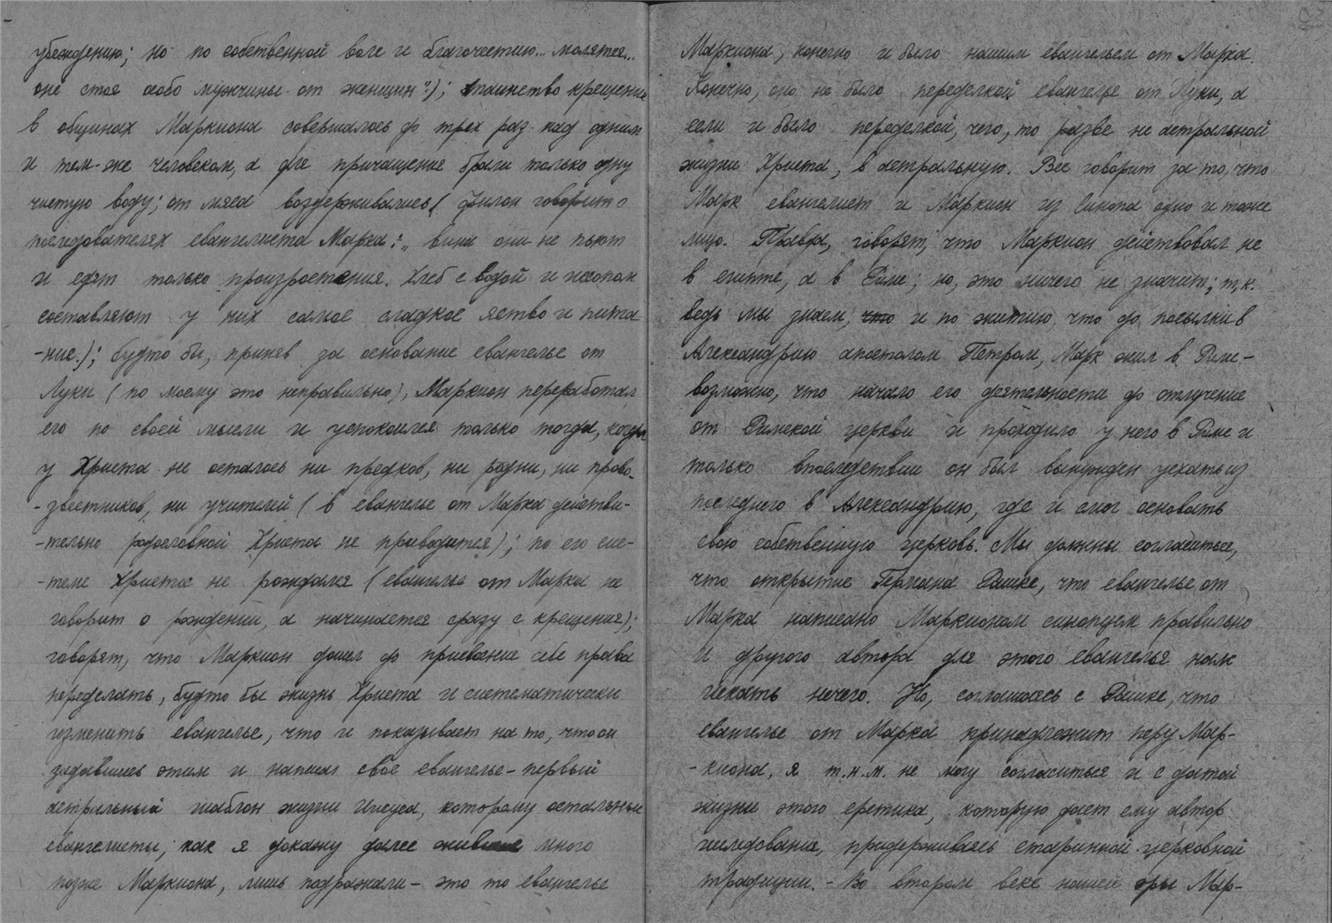 убеждению; но по собственной воле и благочестию... молятся...
оне стоя особо мужчины от женщин".); таинство крещения
в общинах Маркиона совершалось до трех раз над одним
и тем-же человеком, а для причащения брали только одну
чистую воду; от мяса воздерживались (Филон говорит о
последователях евангелиста Марка: „вина они не пьют
и едят только произростения. Хлеб с водой и иссопом
составляют у них самое сладкое яство и пита-
-ние.); будто бы, приняв за основание евангелье от
Луки (по моему это неправильно), Маркион переработал
его по своей мысли и успокоился только тогда, когда
у Христа не осталось ни предков, ни родни, ни прово-
-звестников, ни учителей (в евангелье от Марка действи-
-тельно родословной Христа не приводится); по его сис-
-теме Христос не рождался (евангелье от Марка не
говорит о рождении, а начинается сразу с крещения);
говорят, что Маркион дошел до присвоение себе права
переделать, будто бы жизнь Христа и систематически
изменить евангелье, что и показывает на то, что он
задавшись этим и написал свое евангелье – первый
астральный шаблон жизни Иисуса, которому остальные
евангелисты, как я докажу далее много
позже Маркиона, лишь подражали – это то евангелье
Маркиона, конечно и было нашим евангельем от Марка.
Конечно, оно не было переделкой евангелье от Луки, а
если и было переделкой, чего, то разве не астральной
жизни Христа, в астральную. Все говорит за то, что
Марк евангелист и Маркион из Синопа одно и тоже
лицо. Правда, говорят, что Маркион действовал не
в египте, а в Риме; но, это ничего не значит; т.к.
ведь мы знаем, что и по житию, что до посылки в
Александрию апостолом Петром, Марк жил в Риме –
возможно, что начало его деятельности до отлучение
от Римской церкви и проходило у него в Риме и
только впоследствии он был вынужден уехать из
последнего в Александрию, где и смог основать
свою собственную церковь. Мы должны согласиться,
что открытие Германа Рашке, что евангелье от
Марка написано Маркионом синопцем правильно
и другого автора для этого евангелья нам
искать нечего. Но, соглашаясь с Рашке, что
евангелье от Марка принадлежит перу Мар-
-киона, я т.н.м. не могу согласиться и с датой
жизни этого еретика, которую дает ему автор
исследования, придерживаясь старинной церковной
традиции. – Во втором веке нашей эры Мар-